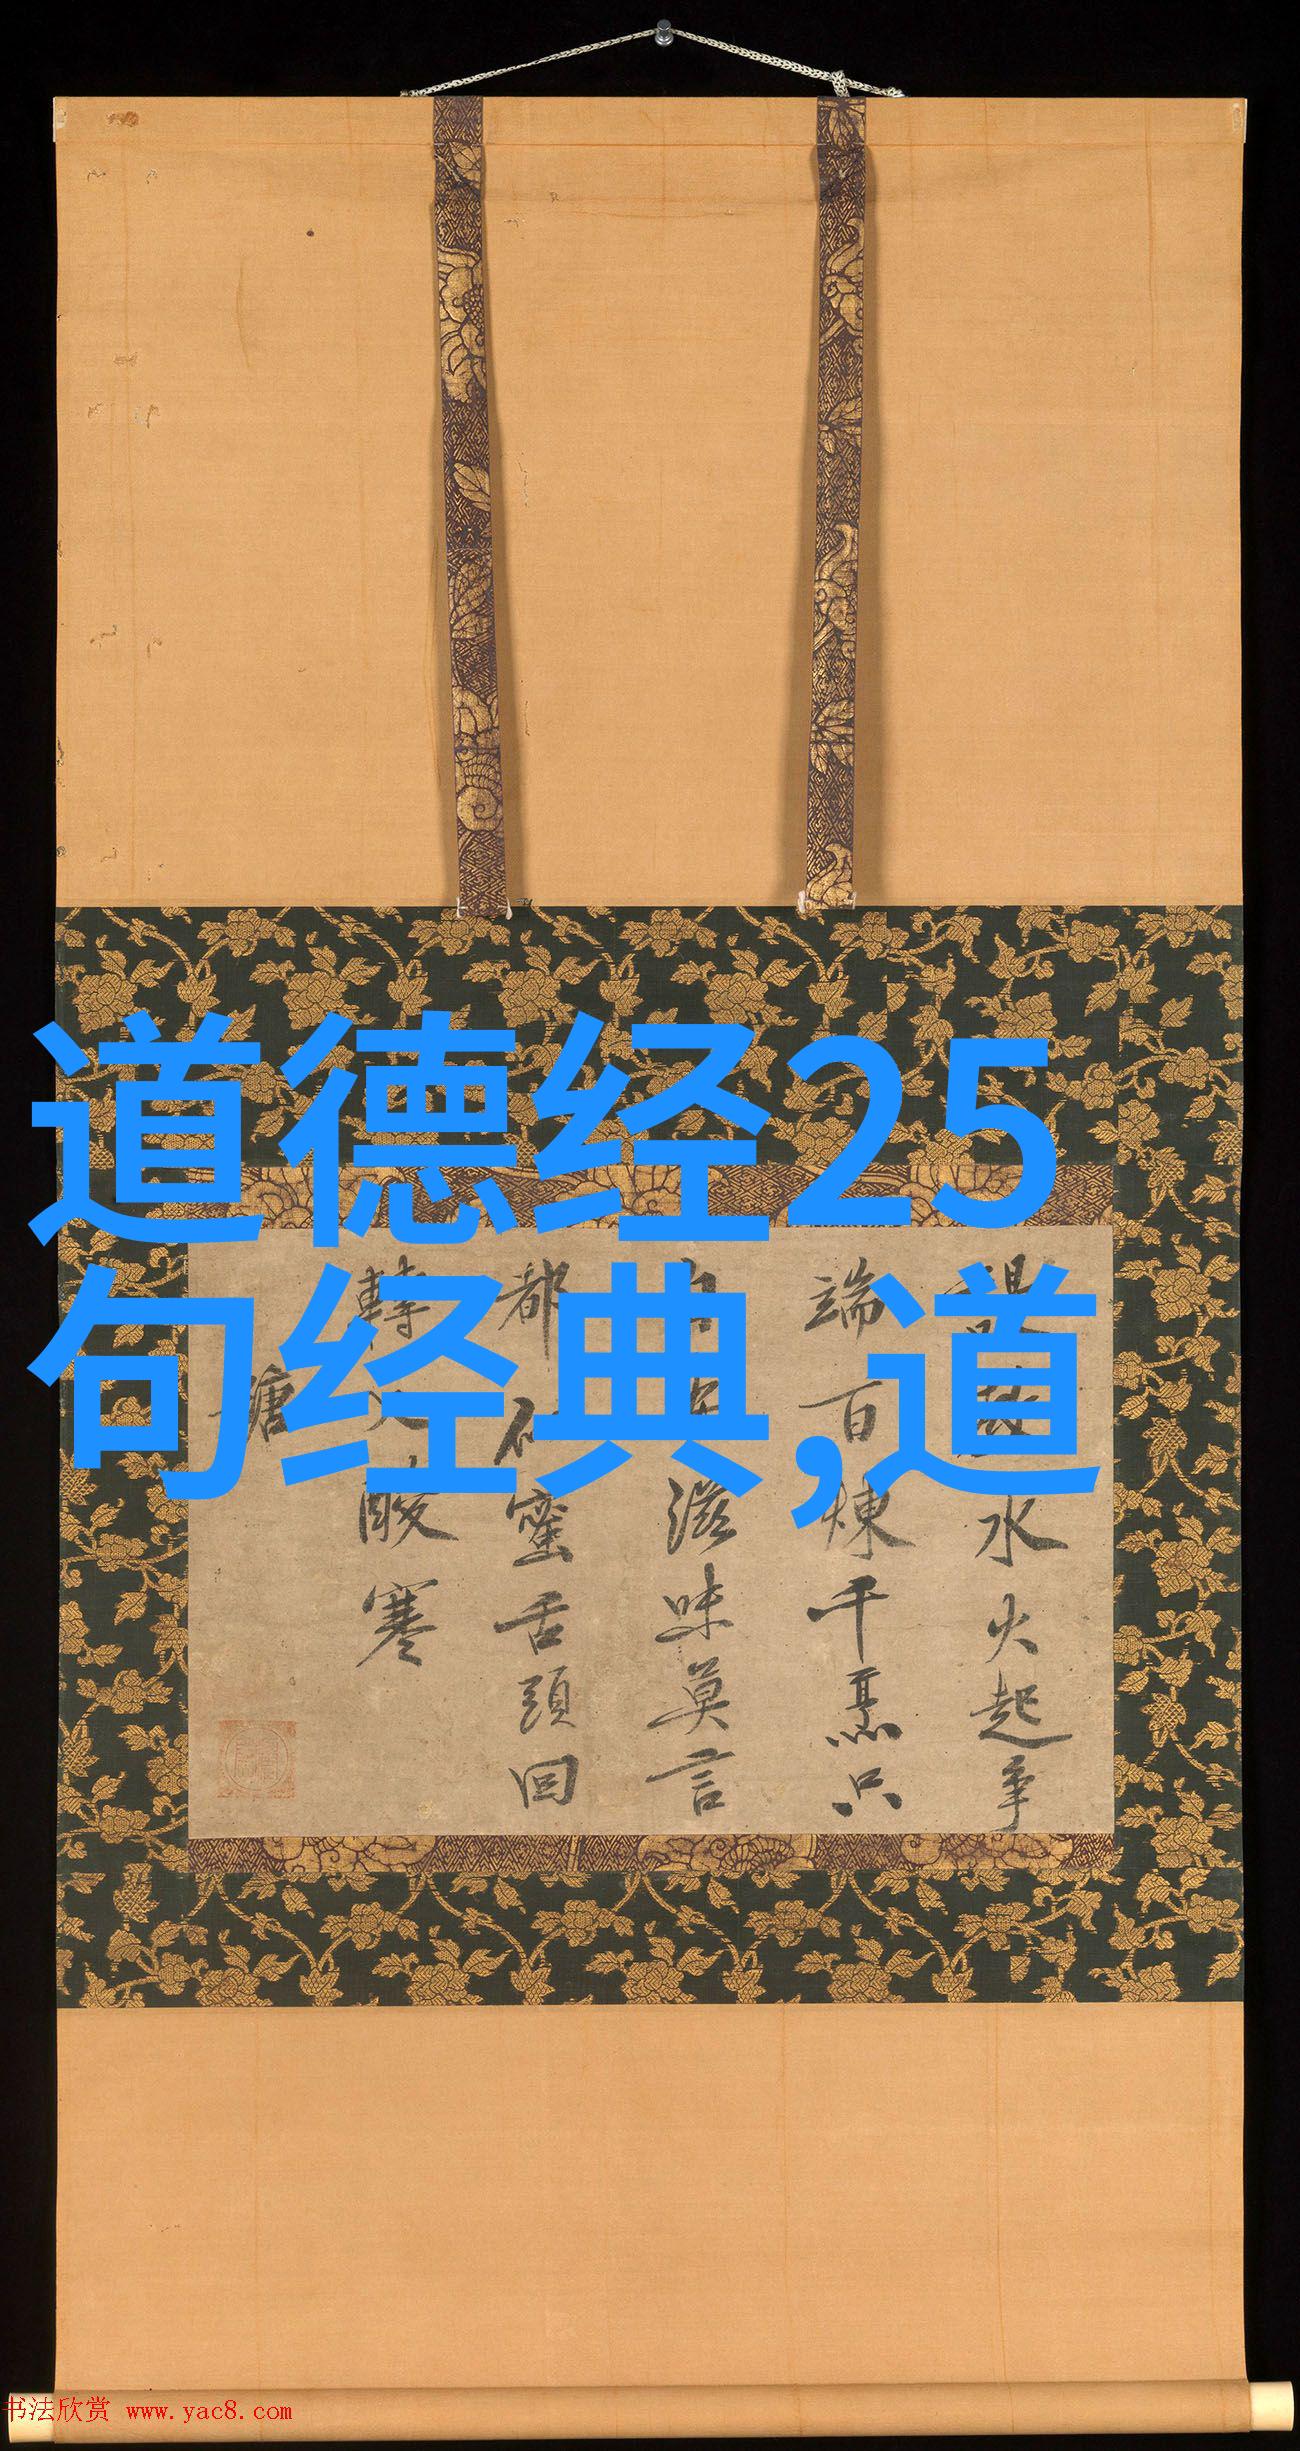 道德经25
句经典,道
水火起爭
端百煉千烹只
滋味莫言
都似蜜舌頭回
轉酸寒
书法欣赏 www.yac8.com